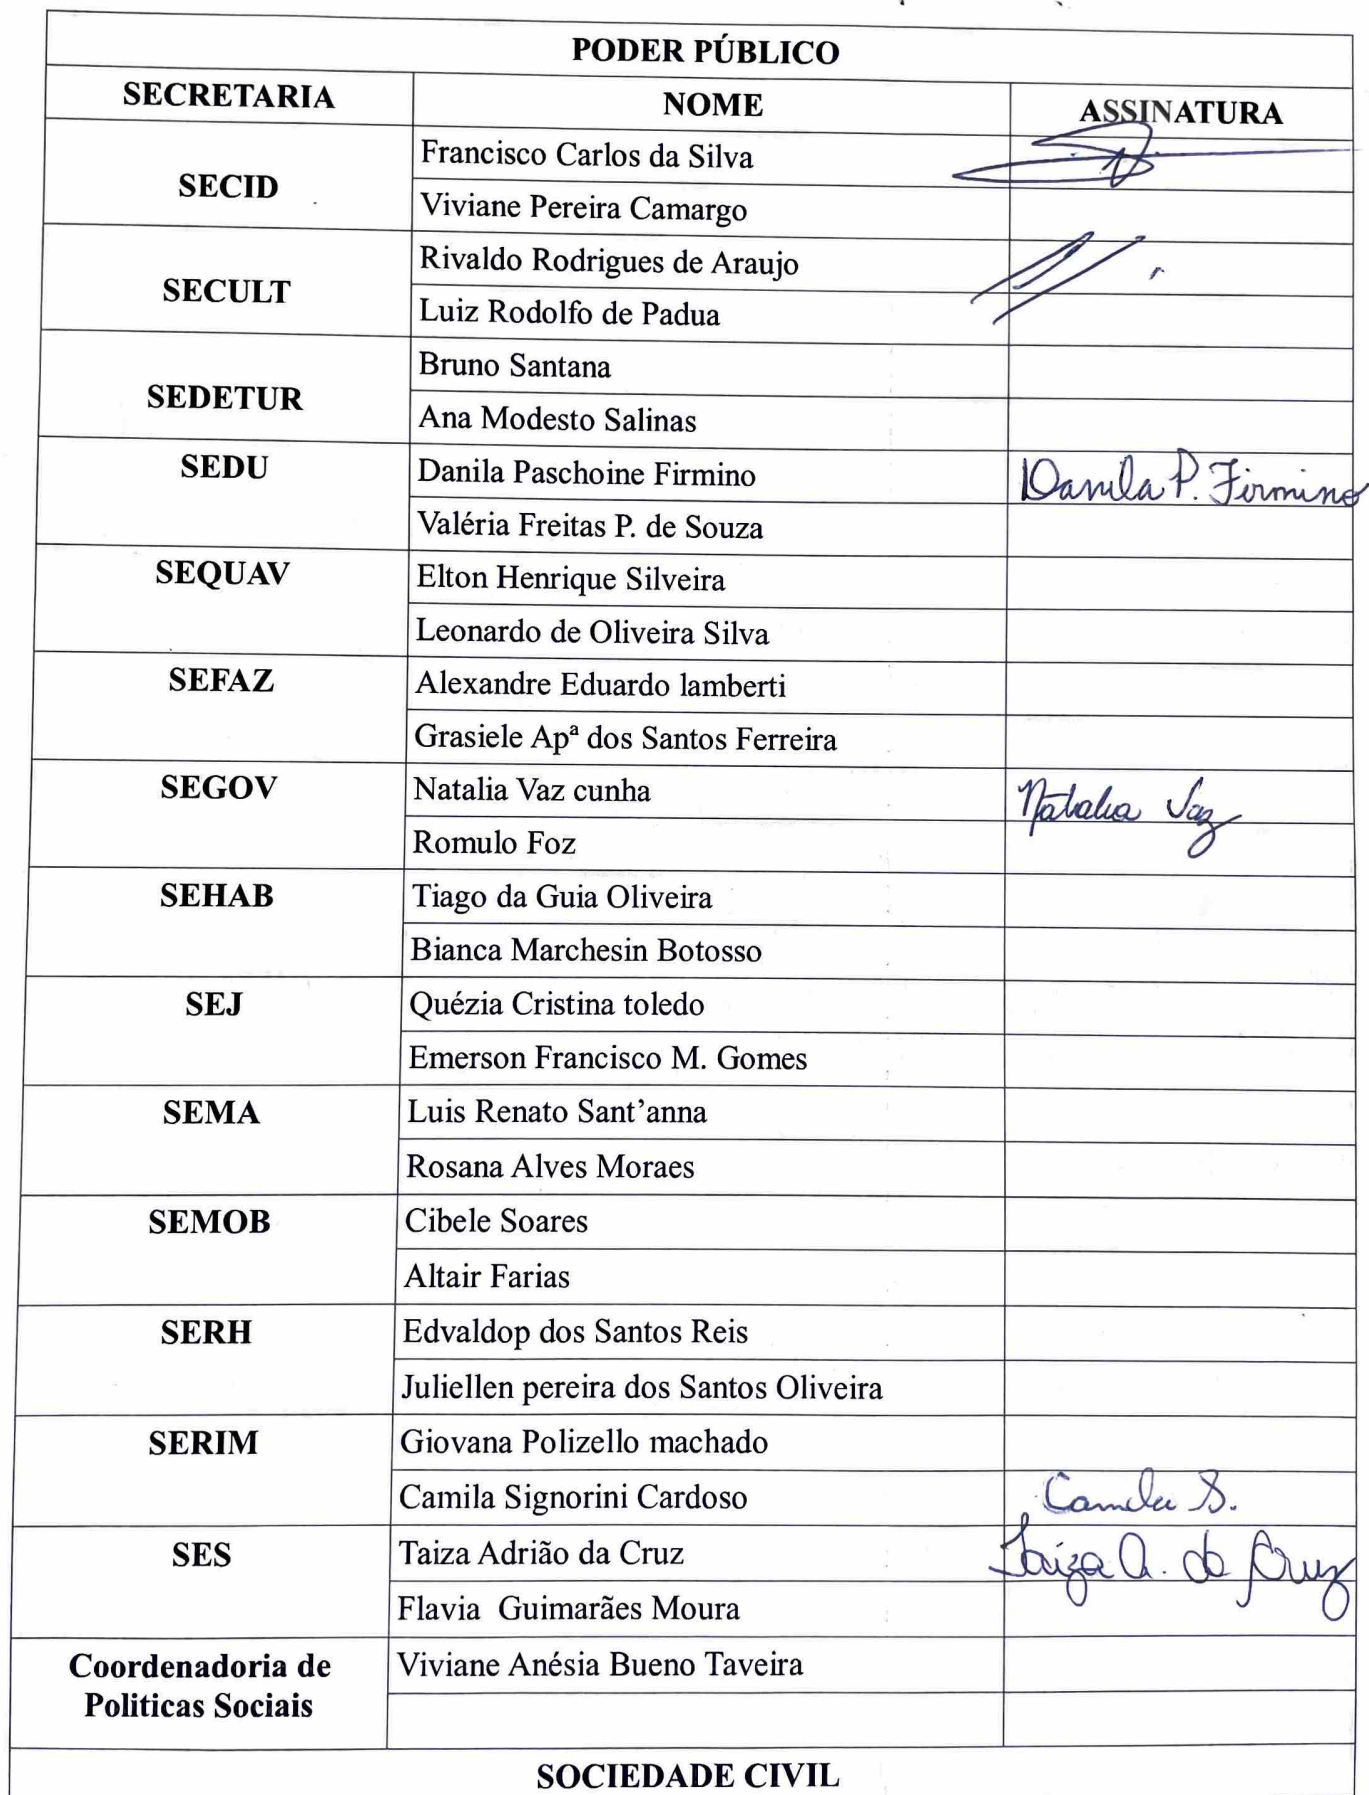 PODER PÚBLICO
SECRETARIA NOME ASSINATURA
SECID
Francisco Carlos da Silva
Viviane Pereira Camargo
SECULT
Rivaldo Rodrigues de Araujo
Luiz Rodolfo de Padua
SEDETUR
Bruno Santana
Ana Modesto Salinas
SEDU
Danila Paschoine Firmino Danila P. Firmino
Valéria Freitas P. de Souza
SEQUAV
Elton Henrique Silveira
Leonardo de Oliveira Silva
SEFAZ
Alexandre Eduardo lamberti
Grasiele Apª dos Santos Ferreira
SEGOV
Natalia Vaz cunha Natalia Vaz
Romulo Foz
SEHAB
Tiago da Guia Oliveira
Bianca Marchesin Botosso
SEJ
Quézia Cristina toledo
Emerson Francisco M. Gomes
SEMA
Luis Renato Sant’anna
Rosana Alves Moraes
SEMOB
Cibele Soares
Altair Farias
SERH
Edvaldop dos Santos Reis
Juliellen pereira dos Santos Oliveira
SERIM
Giovana Polizello machado
Camila Signorini Cardoso Camila S.
SES
Taiza Adrião da Cruz Taiza A. da Cruz
Flavia Guimarães Moura
Coordenadoria de
Politicas Sociais
Viviane Anésia Bueno Taveira
SOCIEDADE CIVIL